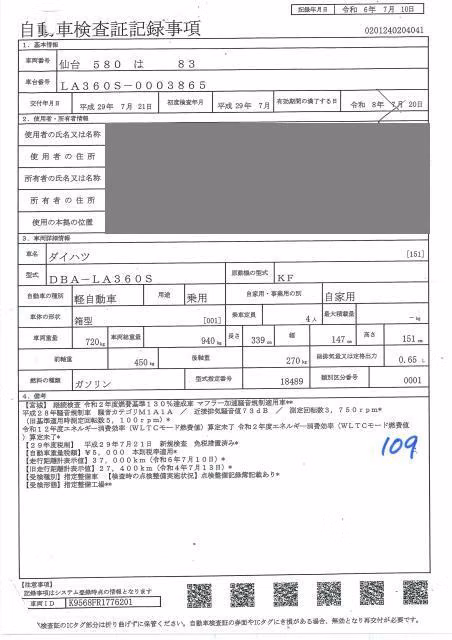 記録年月日 令和 6年 7月 10日
自動車検査証記録事項 0201240204041
1．基本情報
車両番号 仙台 580 は 83
車台番号 LA360S-0003865
交付年月日 平成 29年 7月 21日 初度検査年月 平成 29年 7月 有効期間の満了する日 令和 8年 7月 20日
2．使用者・所有者情報
使用者の氏名又は名称
使用者の住所
所有者の氏名又は名称
所有者の住所
使用の本拠の位置
3．車両詳細情報
車名 ダイハツ [151]
型式 DBA-LA360S 原動機の型式 KF
自動車の種別 軽自動車 用途 乗用 自家用・事業用の別 自家用
車体の形状 箱型 [001] 乗車定員 4人 最大積載量 -kg
車両重量 720kg 車両総重量 940kg 長さ 339cm 幅 147cm 高さ 151cm
前軸重 450kg 後軸重 270kg 総排気量又は定格出力 0.65 L
燃料の種類 ガソリン 型式指定番号 18489 類別区分番号 0001
4．備考
【宮城】 継続検査 令和2年度燃費基準130％達成車 マフラー加速騒音規制適用車**
平成28年騒音規制車 騒音カテゴリM1A1A ／ 近接排気騒音値73dB ／ 測定回転数3，750rpm*
（旧基準適用時測定回転数5，100rpm）*
令和12年度エネルギー消費効率（WLTCモード燃費値）算定未了 令和2年度エネルギー消費効率（WLTCモード燃費値
）算定未了*
【29年度税制】 平成29年7月21日 新規検査 免税措置済み*
【自動車重量税額】¥5，000 本則税率適用*
【走行距離計表示値】37，000km（令和6年7月10日）*
【旧走行距離計表示値】27，400km（令和4年7月13日）*
【受検種別】指定整備車 【検査時の点検整備実施状況】点検整備記録簿記載あり*
【受検形態】指定整備工場**
109
【注意事項】
記録事項はシステム登録時点の情報となります
車両ID K9568FR1776201
*検査証のICタグ部分は折り曲げずに保管ください。自動車検査証の券面やICタグにき損がある場合、無効となり再交付が必要です。